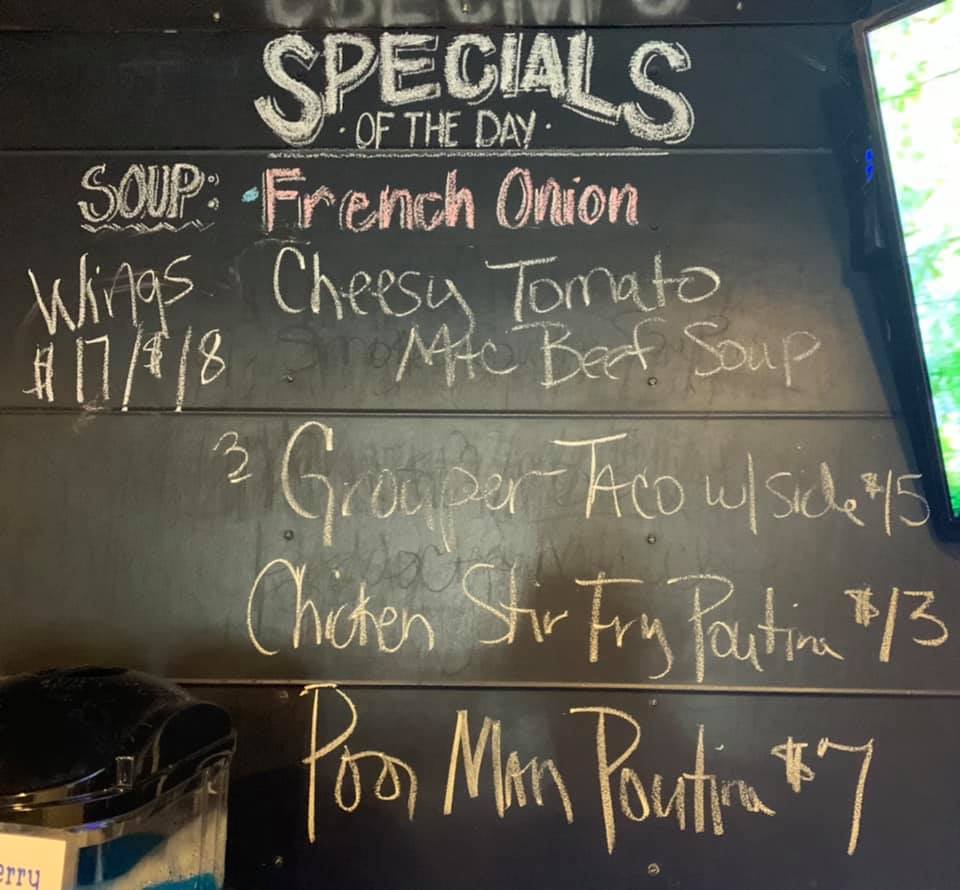 SPECIALS
· OF THE DAY ·
SOUP: · French Onion
Wings
$17/$18
Cheesy Tomato
Mac Beef Soup
3 Grouper Taco w/side $15
Chicken Stir Fry Poutine $13
Poor Man Poutine $7
erry